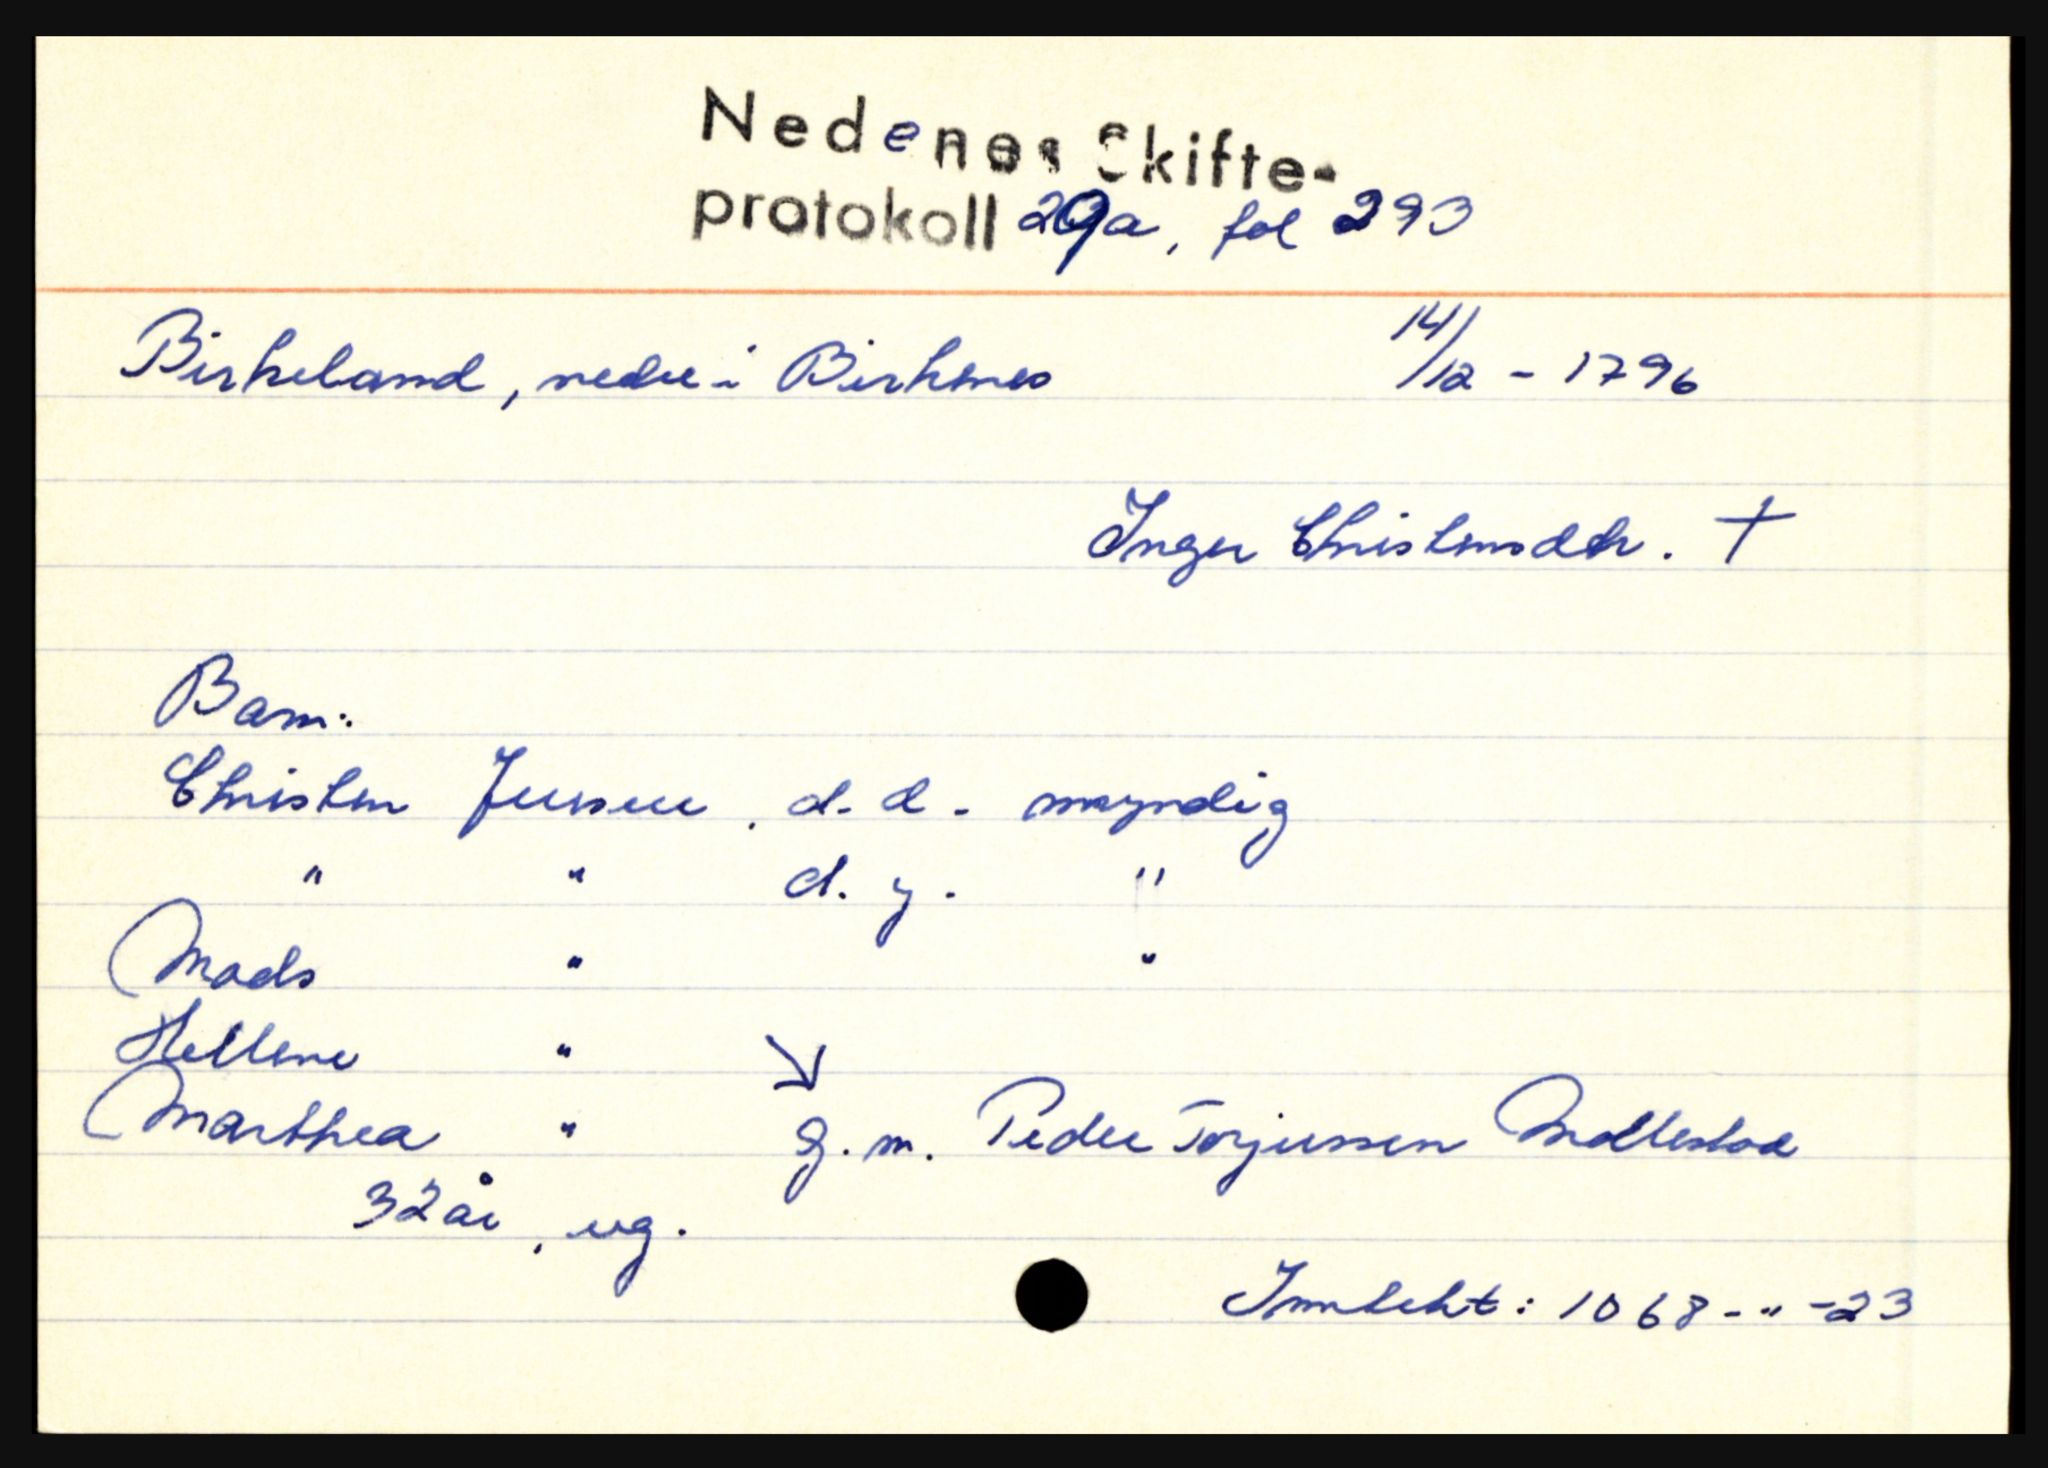 Nedenes Skifte-
protokoll 29a, fol 293
Birkeland, nedre i Birkenes 14/12 - 1796
Inger Christensdtr. †
Barn:
Christen Jensen, d. e. myndig
" " d. y. "
Mads " "
Hellene "
Marthea " g. m. Peder Torjussen Mollestad
32 år, ug.
Inntekt: 1068-"-23